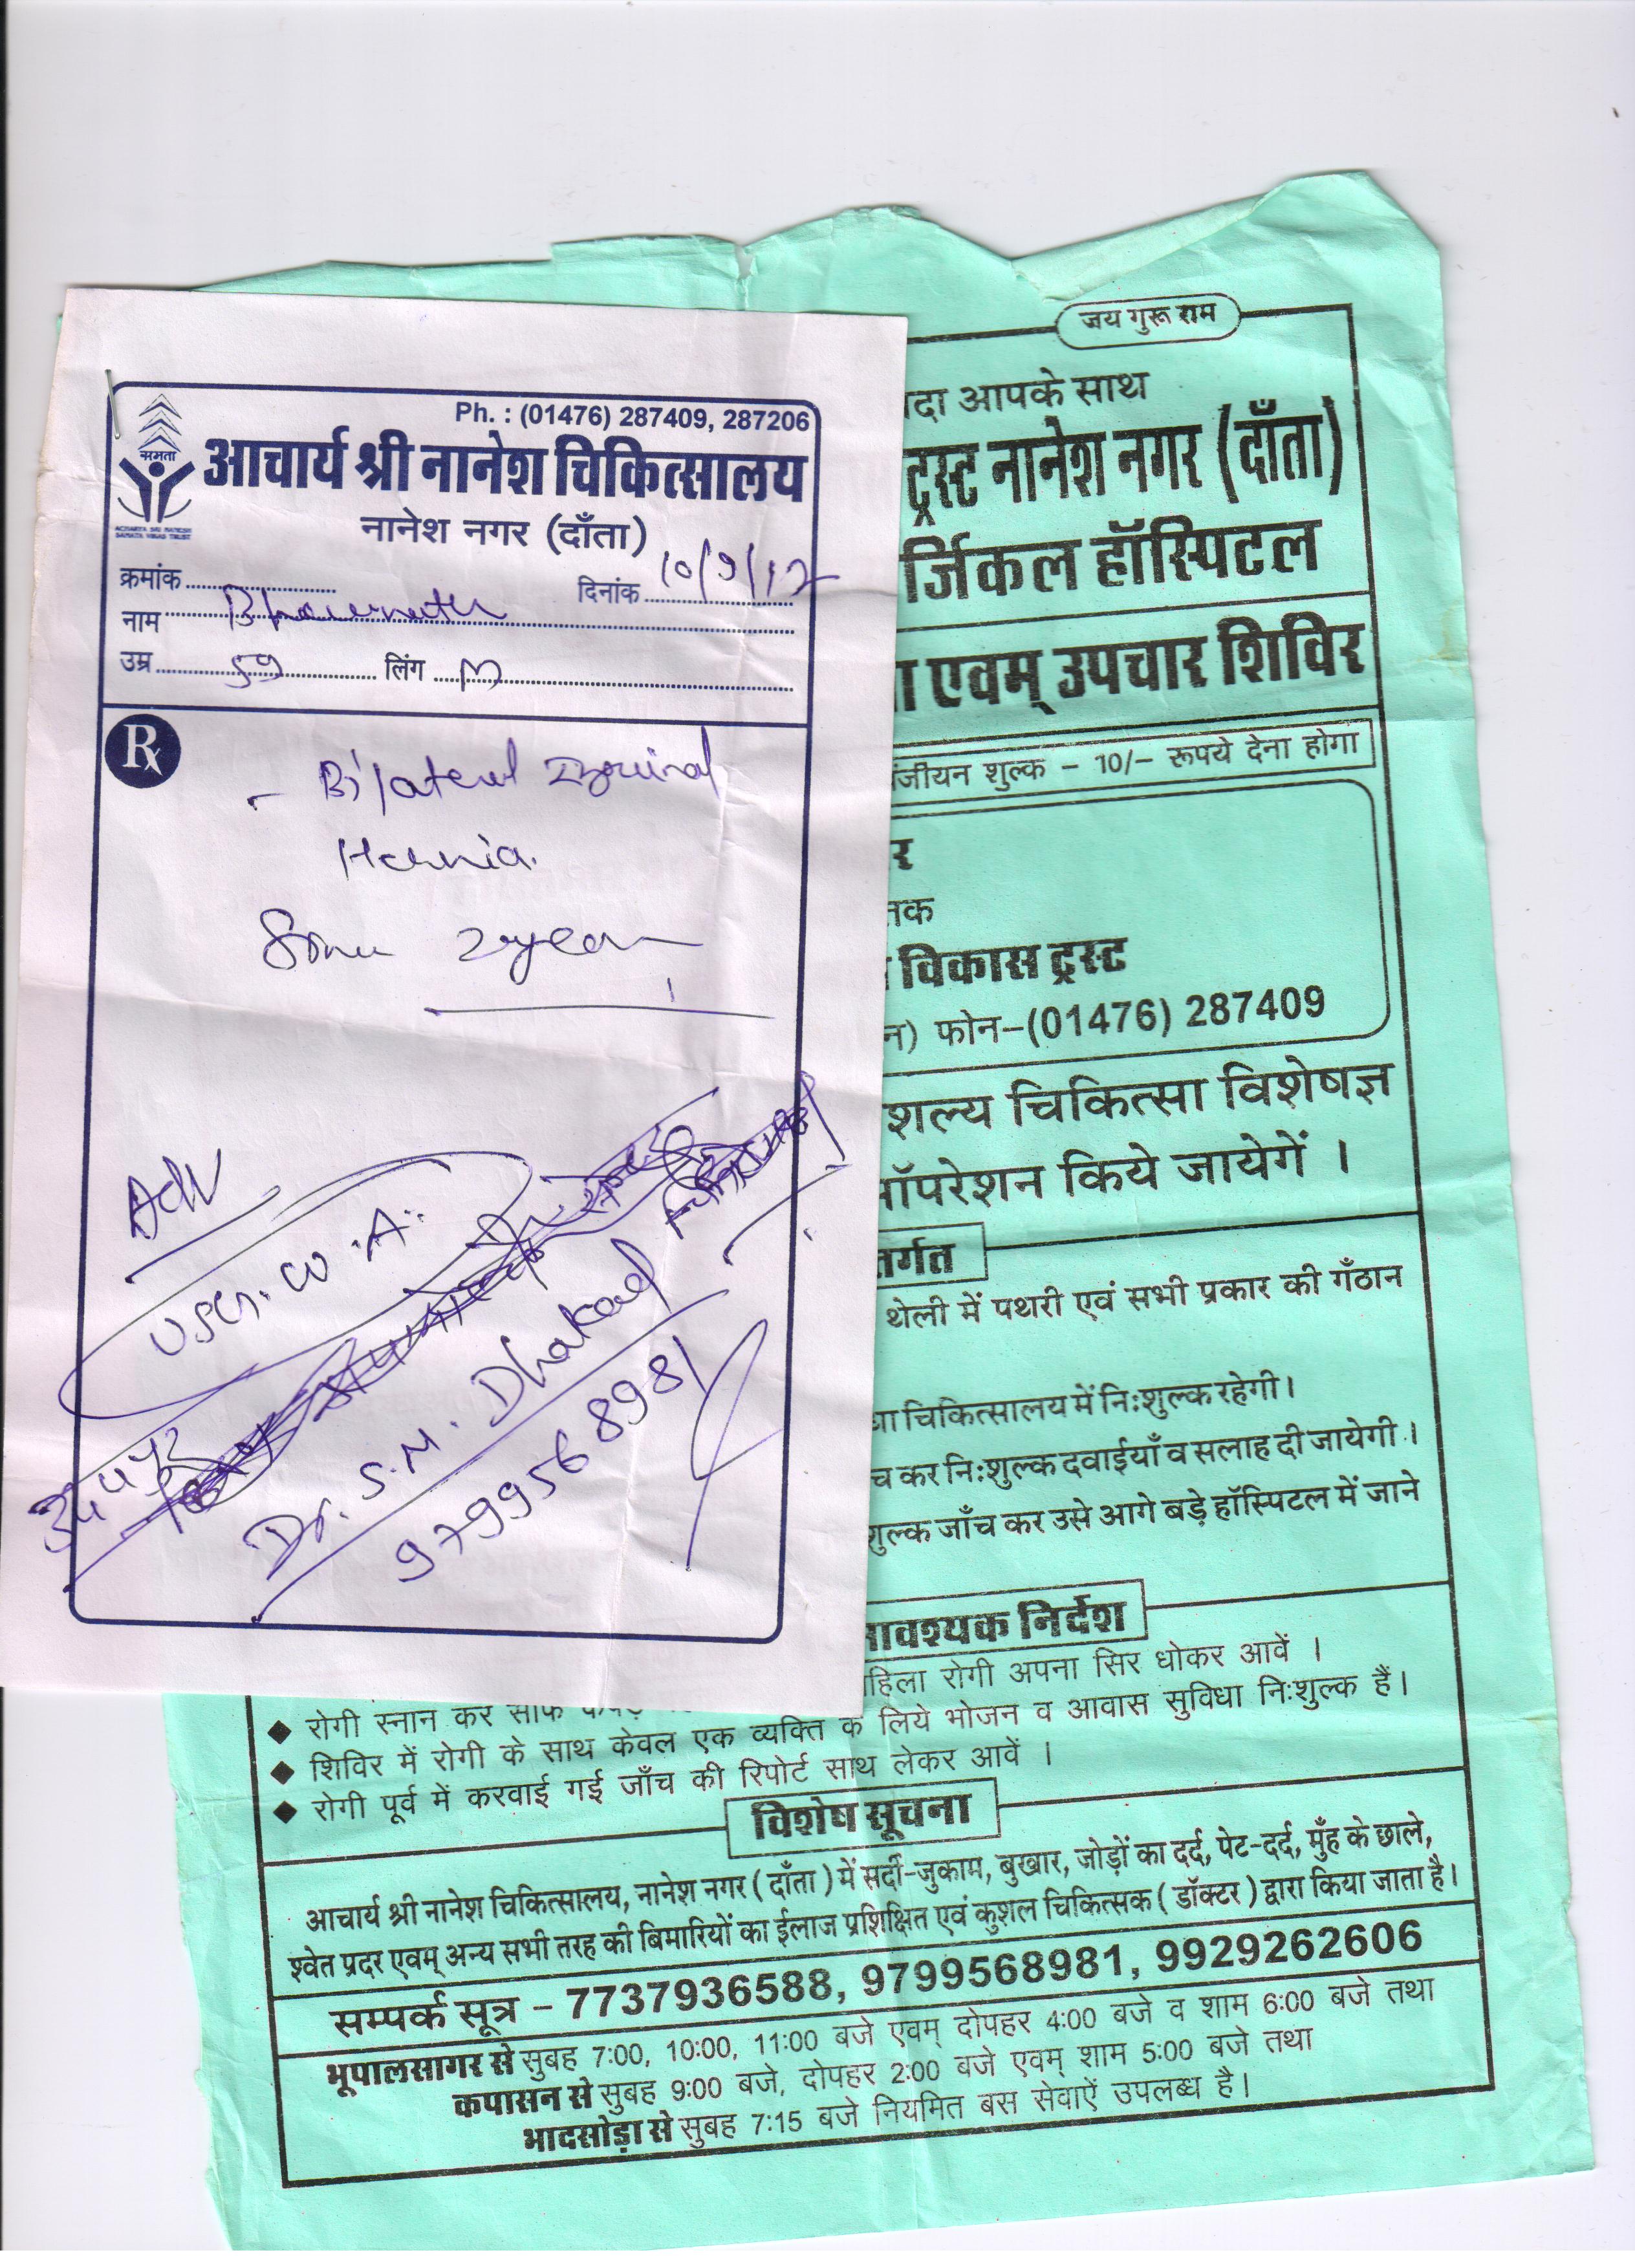 Ph. : (01476) 287409, 287206
समता
ACHARYA SRI NANESH
SAMATA VIKAS TRUST
आचार्य श्री नानेश चिकित्सालय
नानेश नगर (दाँता)
क्रमांक
दिनांक 10/9/17
नाम
उम्र 59 लिंग M
Rx
- Bilateral Inguinal
Hernia.
2 year
Adv
USG. W.A.
Dr. S.M. Dhakad
9799568981
जय गुरू राम
आपके साथ
ट्रस्ट नानेश नगर (दाँता)
र्जिकल हॉस्पिटल
एवम् उपचार शिविर
जीयन शुल्क – 10/– रूपये देना होगा
र
तक
विकास ट्रस्ट
न) फोन–(01476) 287409
शल्य चिकित्सा विशेषज्ञ
ऑपरेशन किये जायेगें ।
तर्गत
थेली में पथरी एवं सभी प्रकार की गँठान
चिकित्सालय में निःशुल्क रहेगी।
च कर निःशुल्क दवाईयाँ व सलाह दी जायेगी ।
शुल्क जाँच कर उसे आगे बड़े हॉस्पिटल में जाने
आवश्यक निर्देश
हिला रोगी अपना सिर धोकर आवें ।
◆ रोगी स्नान कर साफ
◆ शिविर में रोगी के साथ केवल एक व्यक्ति के लिये भोजन व आवास सुविधा निःशुल्क हैं।
◆ रोगी पूर्व में करवाई गई जाँच की रिपोर्ट साथ लेकर आवें ।
विशेष सूचना
आचार्य श्री नानेश चिकित्सालय, नानेश नगर ( दाँता ) में सर्दी-जुकाम, बुखार, जोड़ों का दर्द, पेट-दर्द, मुँह के छाले,
श्वेत प्रदर एवम् अन्य सभी तरह की बिमारियों का ईलाज प्रशिक्षित एवं कुशल चिकित्सक ( डॉक्टर ) द्वारा किया जाता है।
सम्पर्क सूत्र – 7737936588, 9799568981, 9929262606
भूपालसागर से सुबह 7:00, 10:00, 11:00 बजे एवम् दोपहर 4:00 बजे व शाम 6:00 बजे तथा
कपासन से सुबह 9:00 बजे, दोपहर 2:00 बजे एवम् शाम 5:00 बजे तथा
भादसोड़ा से सुबह 7:15 बजे नियमित बस सेवाऐं उपलब्ध है।